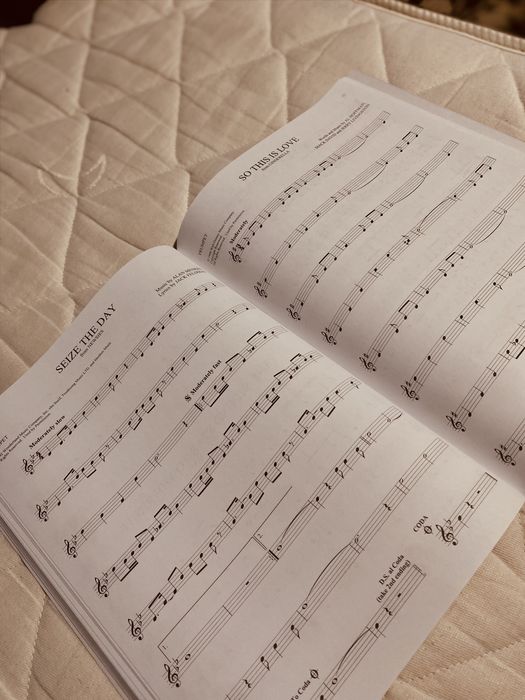 SEIZE THE DAY
from NEWSIES
Music by ALAN MENKEN
Lyrics by JACK
Moderately slow
Moderately fast
1.
2.
To Coda
D.S. al Coda
(take 2nd ending)
CODA
SO THIS IS LOVE
from CINDERELLA
TRUMPET
Words and Music by AL HOFFMAN,
MACK DAVID and JERRY LIVINGSTON
Moderately